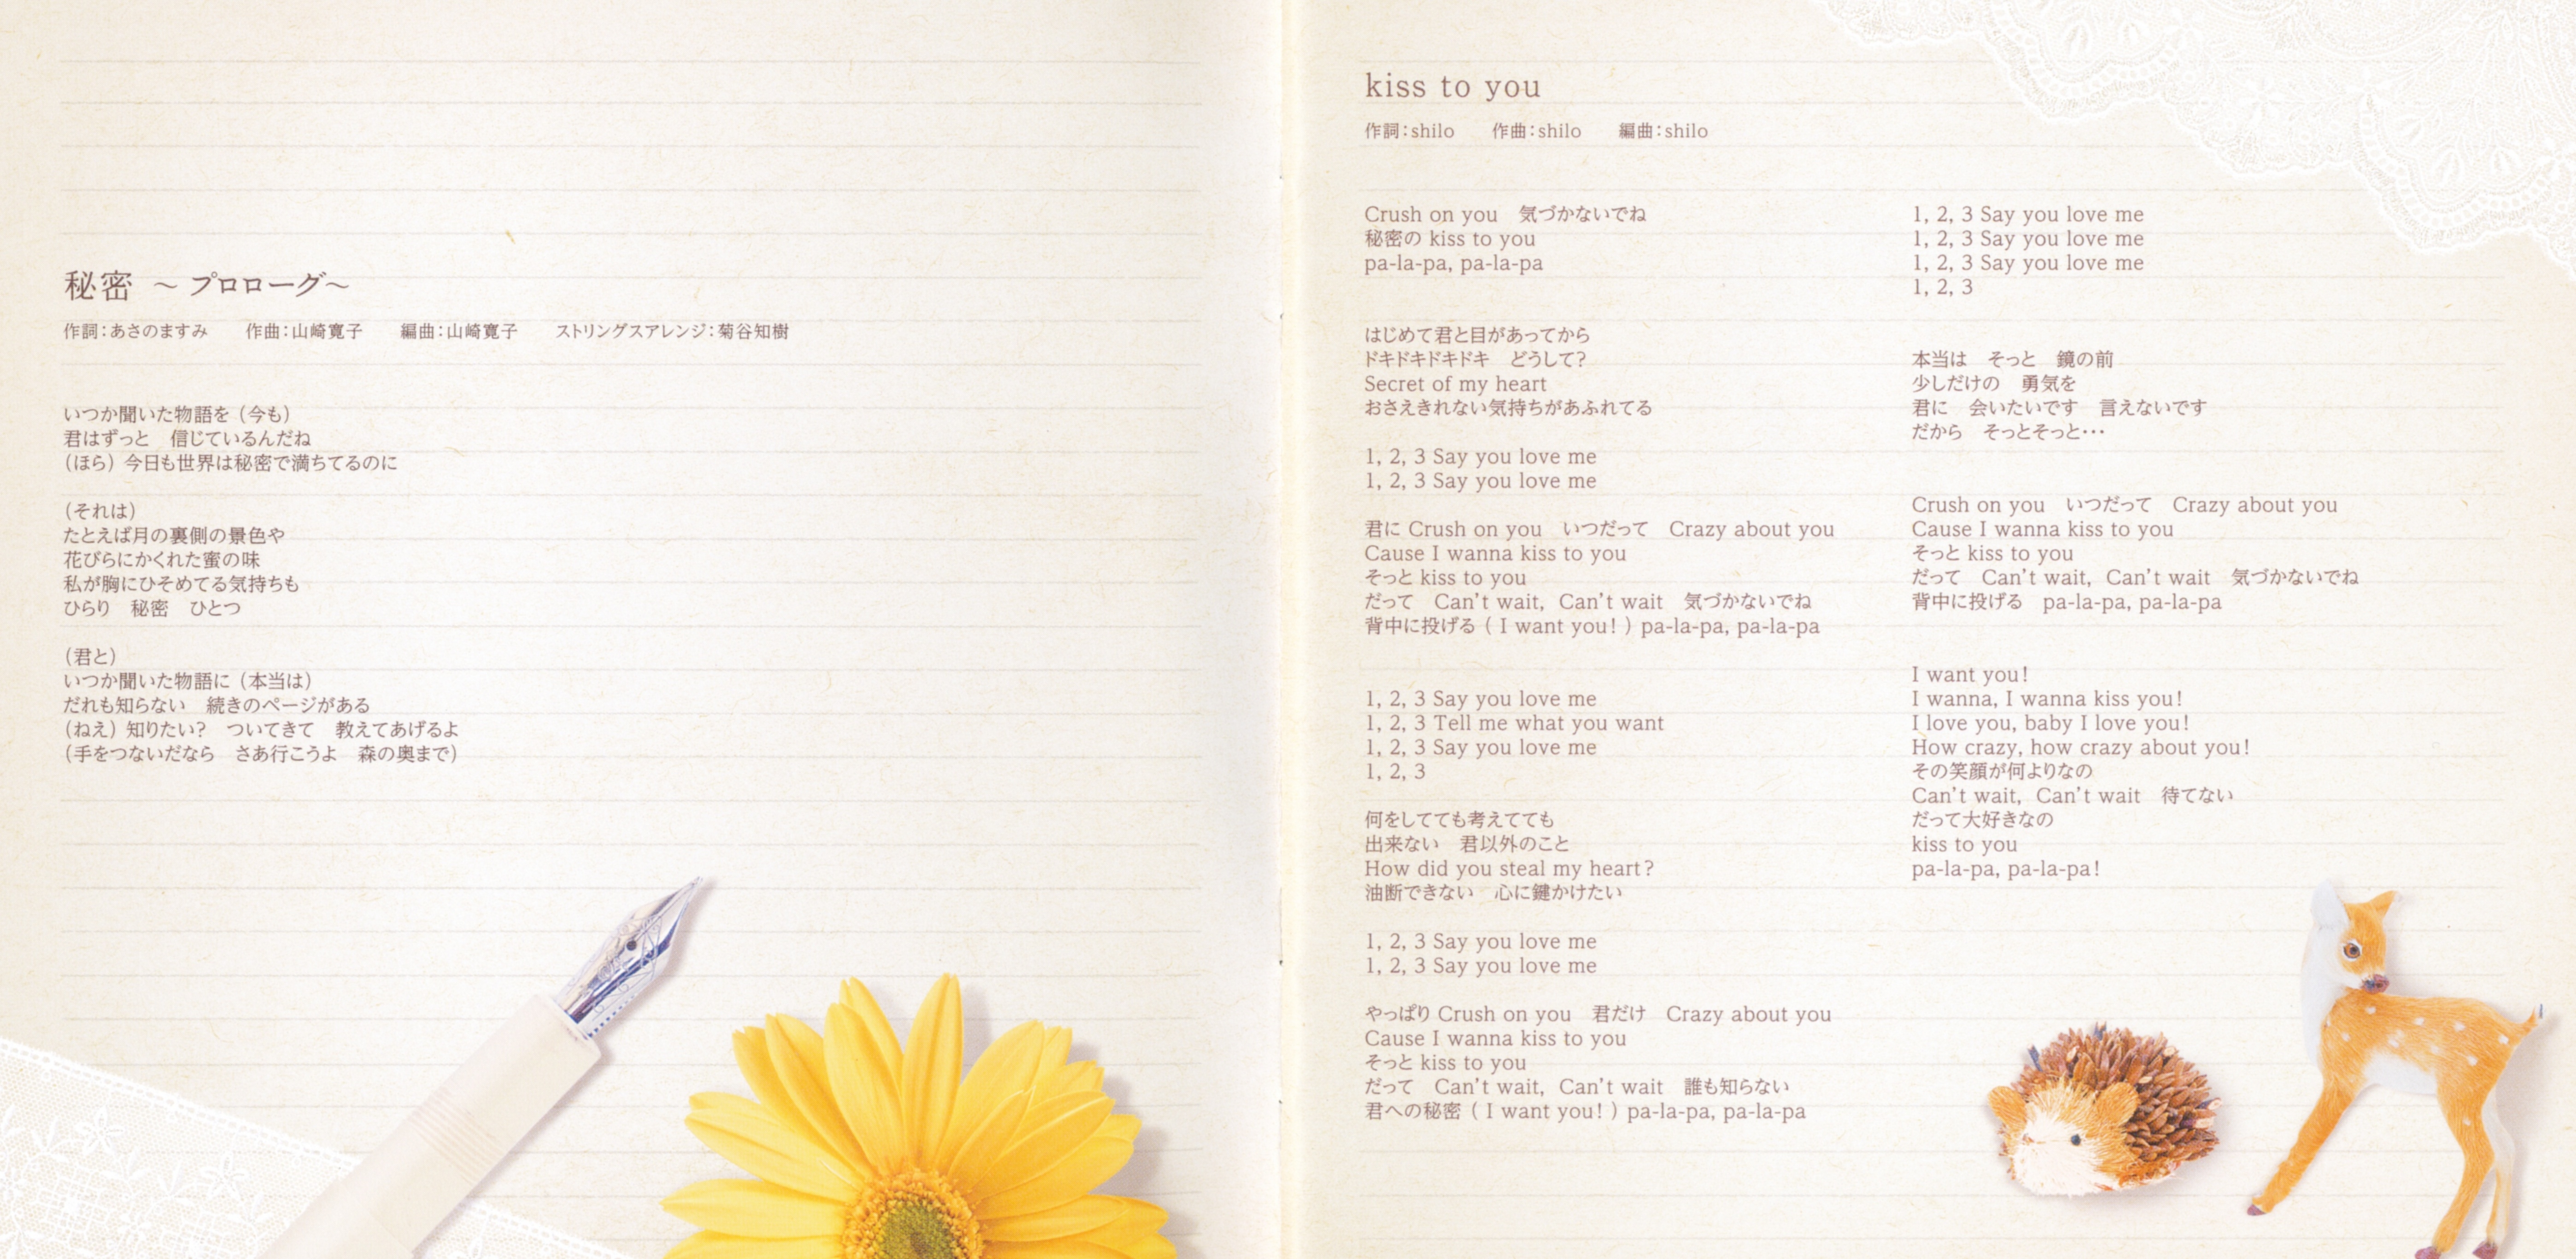 秘密 ～プロローグ～
作詞：あさのますみ　作曲：山崎寛子　編曲：山崎寛子　ストリングスアレンジ：菊谷知樹
いつか聞いた物語を（今も）
君はずっと　信じているんだね
（ほら）今日も世界は秘密で満ちてるのに
（それは）
たとえば月の裏側の景色や
花びらにかくれた蜜の味
私が胸にひそめてる気持ちも
ひらり　秘密　ひとつ
（君と）
いつか聞いた物語に（本当は）
だれも知らない　続きのページがある
（ねえ）知りたい？　ついてきて　教えてあげるよ
（手をつないだなら　さあ行こうよ　森の奥まで）
kiss to you
作詞：shilo　作曲：shilo　編曲：shilo
Crush on you　気づかないでね
秘密の kiss to you
pa-la-pa, pa-la-pa
はじめて君と目があってから
ドキドキドキドキ　どうして？
Secret of my heart
おさえきれない気持ちがあふれてる
1, 2, 3 Say you love me
1, 2, 3 Say you love me
君に Crush on you　いつだって　Crazy about you
Cause I wanna kiss to you
そっと kiss to you
だって　Can't wait, Can't wait　気づかないでね
背中に投げる ( I want you! ) pa-la-pa, pa-la-pa
1, 2, 3 Say you love me
1, 2, 3 Tell me what you want
1, 2, 3 Say you love me
1, 2, 3
何をしてても考えてても
出来ない　君以外のこと
How did you steal my heart?
油断できない　心に鍵かけたい
1, 2, 3 Say you love me
1, 2, 3 Say you love me
やっぱり Crush on you　君だけ　Crazy about you
Cause I wanna kiss to you
そっと kiss to you
だって　Can't wait, Can't wait　誰も知らない
君への秘密 ( I want you! ) pa-la-pa, pa-la-pa
1, 2, 3 Say you love me
1, 2, 3 Say you love me
1, 2, 3 Say you love me
1, 2, 3
本当は　そっと　鏡の前
少しだけの　勇気を
君に　会いたいです　言えないです
だから　そっとそっと…
Crush on you　いつだって　Crazy about you
Cause I wanna kiss to you
そっと kiss to you
だって　Can't wait, Can't wait　気づかないでね
背中に投げる　pa-la-pa, pa-la-pa
I want you!
I wanna, I wanna kiss you!
I love you, baby I love you!
How crazy, how crazy about you!
その笑顔が何よりなの
Can't wait, Can't wait　待てない
だって大好きなの
kiss to you
pa-la-pa, pa-la-pa!